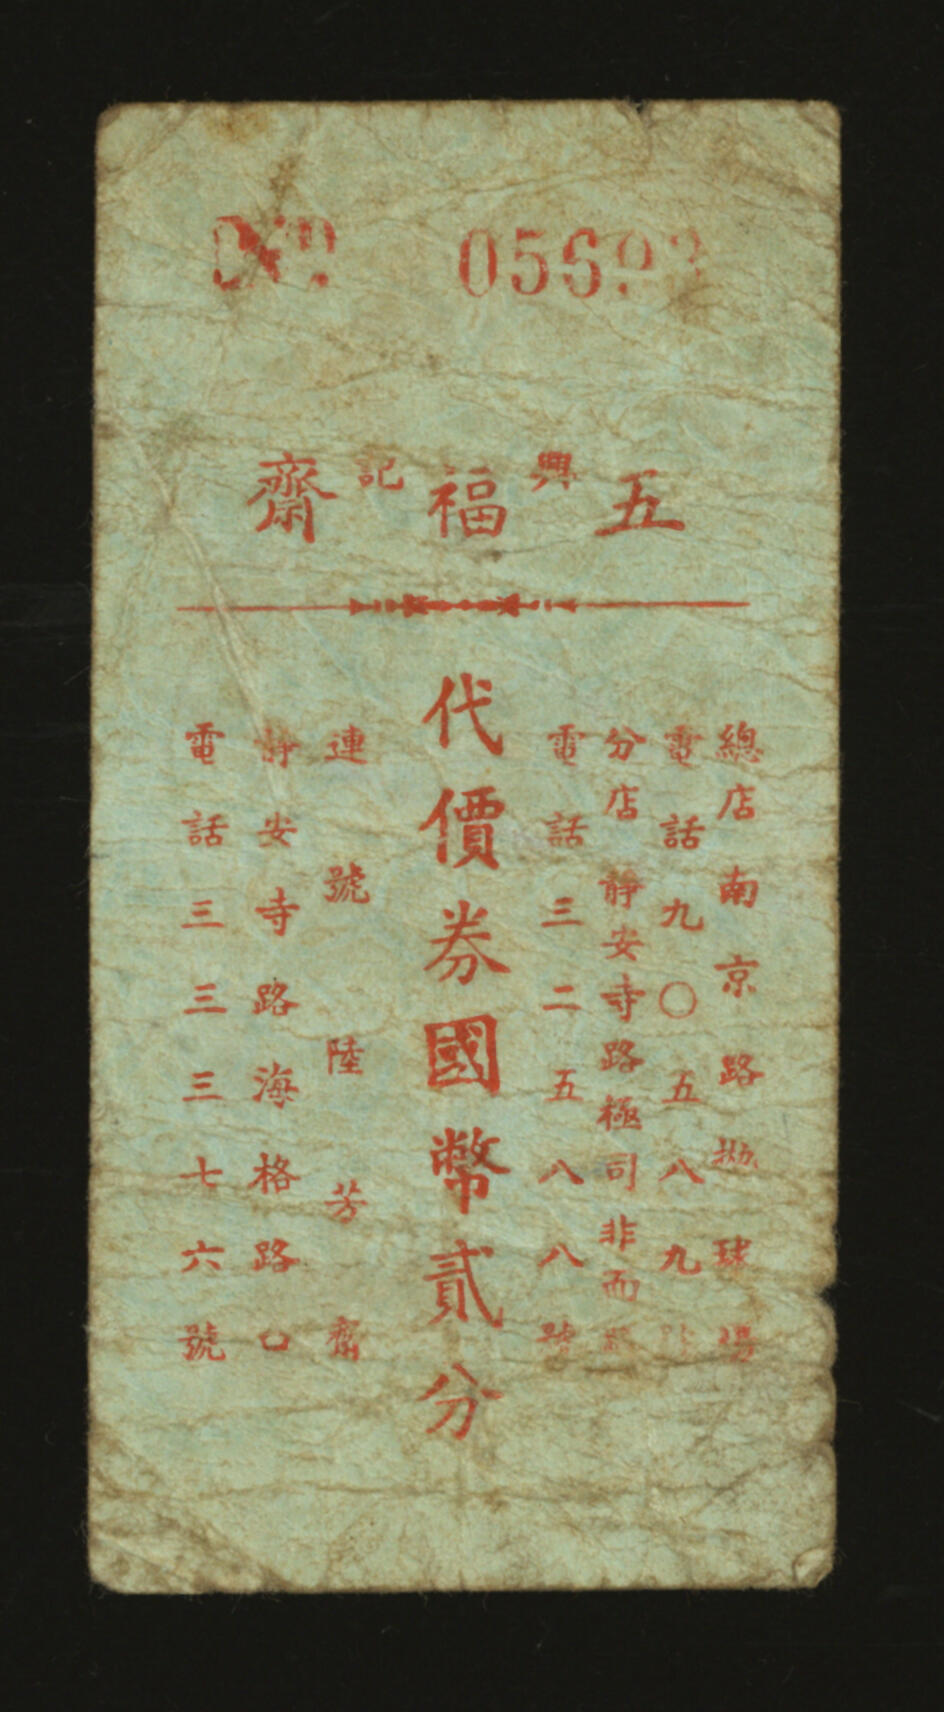 No 0569
五興福記齋
總店南京路拋球場
電話九〇五八九號
分店靜安寺路極司非而路
電話三二五八八號
代價券國幣貳分
連號陸芳齋
靜安寺路海格路口
電話三三三七六號